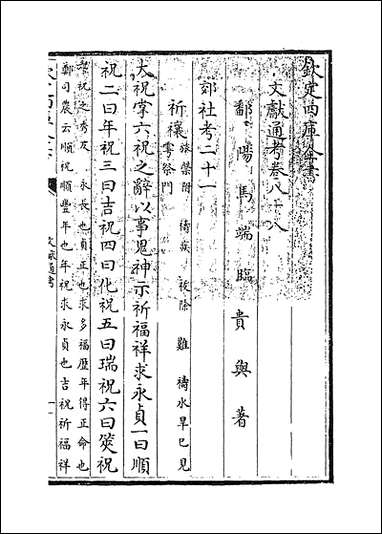 欽定四庫全書
文獻通考卷八十八
鄱陽馬端臨貴與著
郊社考二十一
祈禳 旅禜附 禱疾 祓除 難 禱水旱已見
雩祭門
大祝掌六祝之辭以事鬼神示祈福祥求永貞一曰順
祝二曰年祝三曰吉祝四曰化祝五曰瑞祝六曰筴祝
永長也貞正也求多福歷年得正命也
鄭司農云順祝順豐年也年祝求永貞也吉祝祈福祥
文獻通考